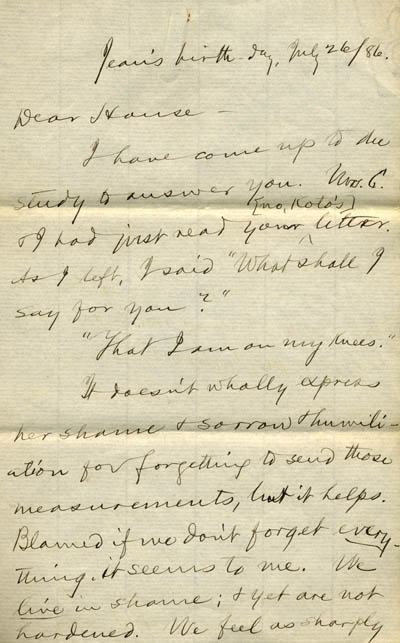 Jean's birth-day, July 26/86.
Dear House —
I have come up to the
study to answer you. Mrs. C.
[no, Koto's]
& I had just read your letter.
As I left, I said "What shall I
say for you?"
"That I am on my knees."
It doesn't wholly express
her shame & sorrow & humili-
ation for forgetting to send those
measurements, but it helps.
Blamed if we don't forget every-
thing, it seems to me. We
live in shame; & yet are not
hardened. We feel as sharply